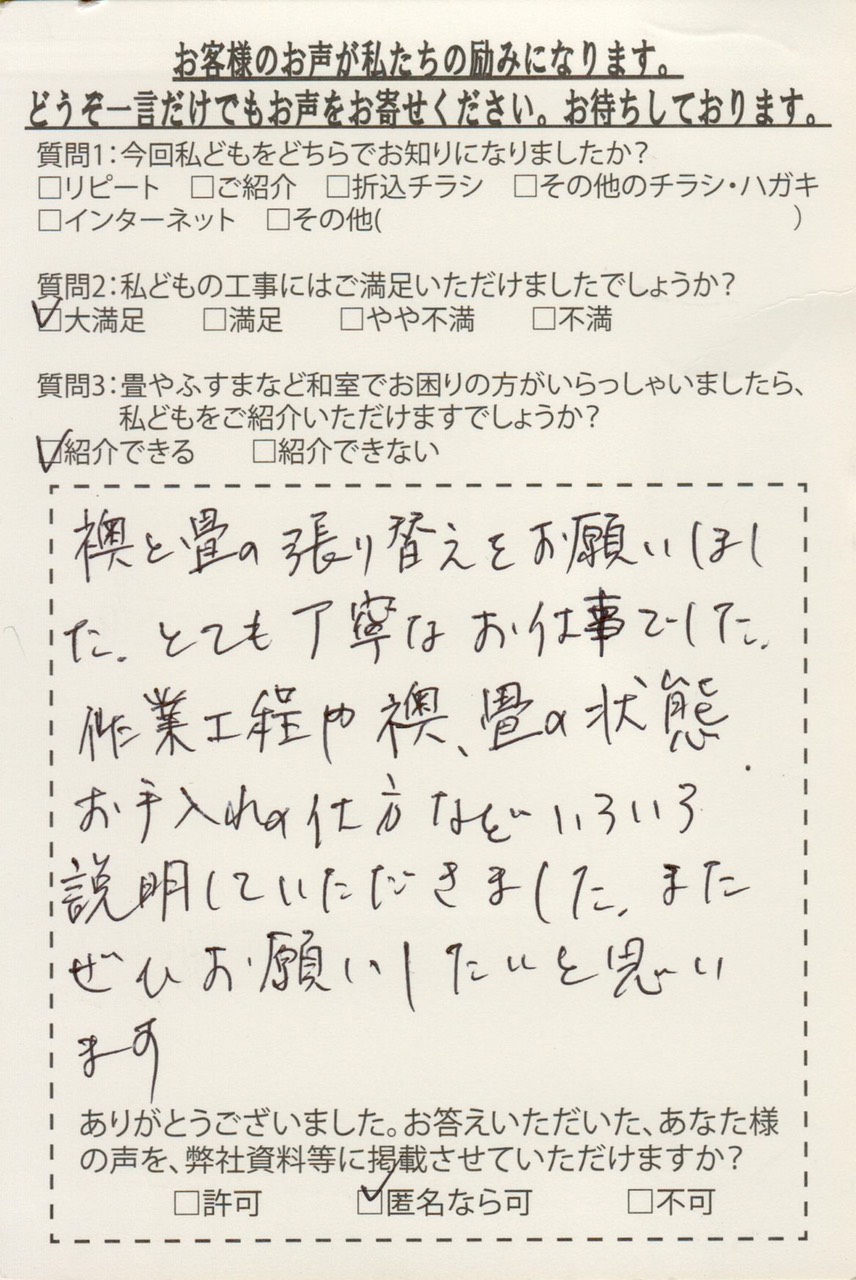 お客様のお声が私たちの励みになります。
どうぞ一言だけでもお声をお寄せください。お待ちしております。
質問1：今回私どもをどちらでお知りになりましたか？
□リピート □ご紹介 □折込チラシ □その他のチラシ・ハガキ
□インターネット □その他( )
質問2：私どもの工事にはご満足いただけましたでしょうか？
☑大満足 □満足 □やや不満 □不満
質問3：畳やふすまなど和室でお困りの方がいらっしゃいましたら、
私どもをご紹介いただけますでしょうか？
☑紹介できる □紹介できない
襖と畳の張り替えをお願いしまし
た。とても丁寧なお仕事でした。
作業工程や襖、畳の状態
お手入れの仕方などいろいろ
説明していただきました。また
ぜひお願いしたいと思い
ます
ありがとうございました。お答えいただいた、あなた様
の声を、弊社資料等に掲載させていただけますか？
□許可 ☑匿名なら可 □不可